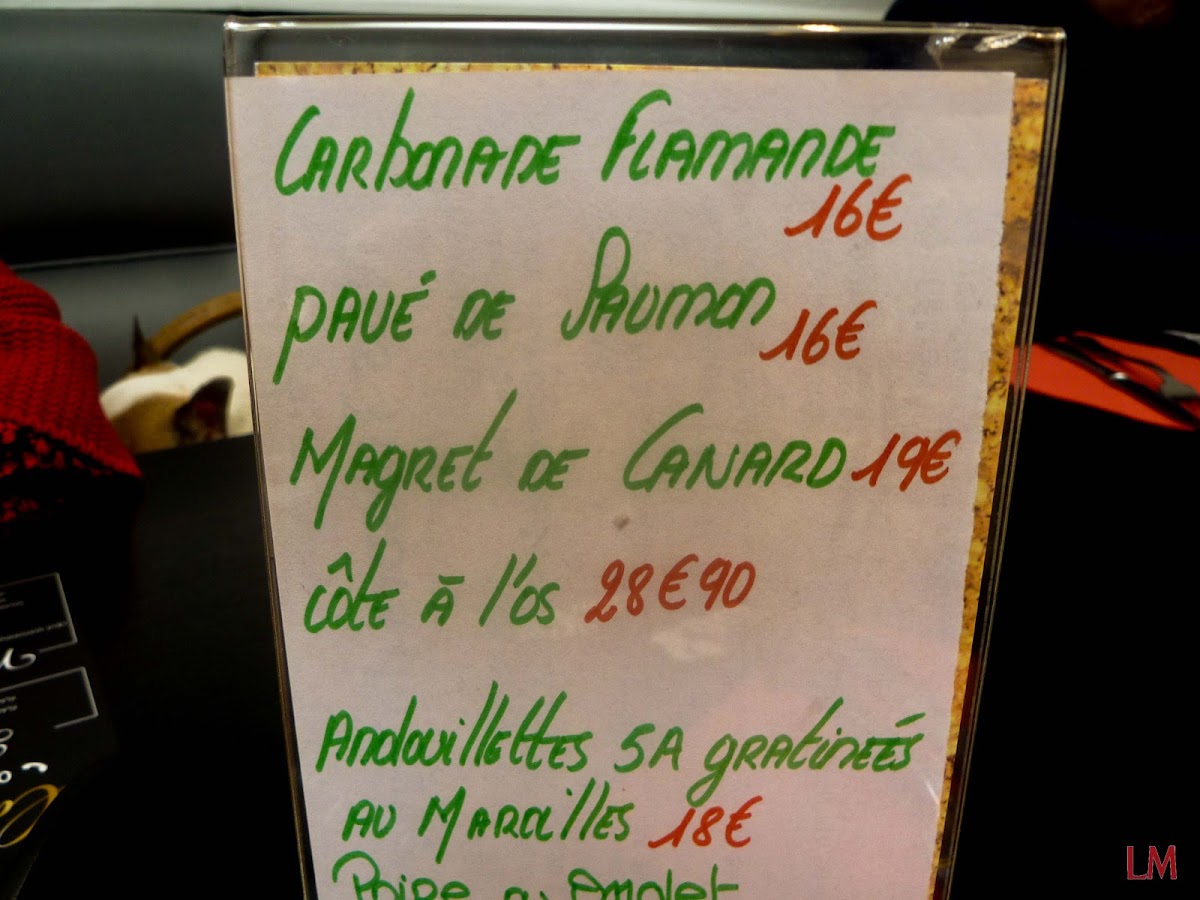 Carbonade Flamande
16€
pavé de Saumon
16€
Magret de Canard 19€
côte à l'os 28€90
Andouillettes 5A gratineés
au Maroilles 18€
Poire au Amolet
LM